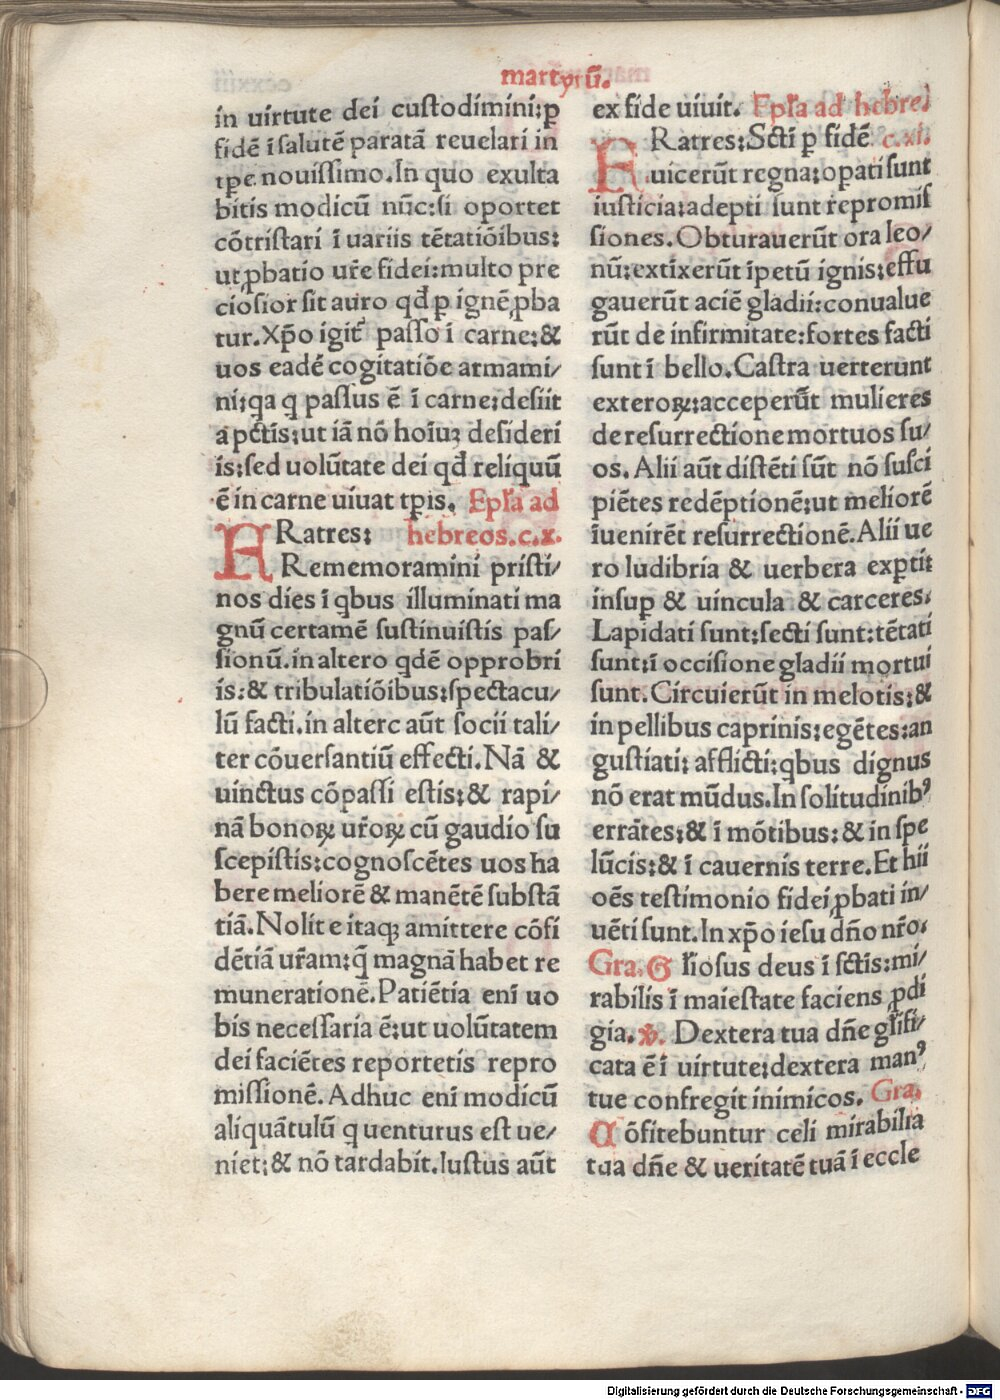 martyrū.
in uirtute dei custodimini:p̱
fidē ī salutē paratā reuelari in
tp̄e nouissimo.In quo exulta
bitis modicū nūc:si oportet
cōtristari ī uariis tētatiōibus:
ut ꝓbatio ur̄e fidei:multo pre
ciosior sit auro qđ ꝑ ignē ꝓba
tur.Xp̄o igit᷑ passo ī carne:&
uos eadē cogitatiōe armami/
ni:qa q passus ē ī carne:desiit
a pctīs:ut iā nō hoīuʒ desideri
is:sed uolūtate dei qđ reliquū
ē in carne uiuat tp̄is. Epl'a ad
FRatres: hebreos.c.x.
Rememoramini pristi/
nos dies ī qbus illuminati ma
gnū certamē sustinuistis pas/
sionū.in altero qdē opprobri
is:& tribulatiōibus:spectacu/
lū facti.in altero aūt socii tali/
ter cōuersantiū effecti.Nā &
uinctus cōpassi estis:& rapi/
nā bonoꝝ ur̄oꝝ cū gaudio su
scepistis:cognoscētes uos ha
bere meliorē & manētē substā
tiā.Nolite itaqꝫ amittere cōfi
dētiā ur̄am:q̄ magnā habet re
munerationē.Patiētia enī uo
bis necessaria ē:ut uolūtatem
dei faciētes reportetis repro
missionē.Adhuc enī modicū
aliquātulū q uenturus est ue/
niet:& nō tardabit.Iustus aūt
ex fide uiuit. Epl'a ad hebre.
FRatres:Scti ꝑ fidē c.xi.
uicerūt regna:opati sunt
iusticia:adepti sunt repromis
siones.Obturauerūt ora leo/
nū:extixerūt īpetū ignis:effu
gauerūt aciē gladii:conualue
rūt de infirmitate:fortes facti
sunt ī bello.Castra uerterunt
exteroꝝ:acceperūt mulieres
de resurrectione mortuos su/
os.Alii aūt distēti sūt nō susci
piētes redēptionē:ut meliorē
īuenirēt resurrectionē.Alii ue
ro ludibria & uerbera exꝑti:
insuꝑ & uincula & carceres.
Lapidati sunt:secti sunt:tētati
sunt:ī occisione gladii mortui
sunt.Circuierūt in melotis:&
in pellibus caprinis:egētes:an
gustiati:afflicti:qbus dignus
nō erat mūdus.In solitudinibꝰ
errātes:& ī mōtibus:& in spe
lūcis:& ī cauernis terre.Et hii
oēs testimonio fidei ꝓbati in/
uēti sunt.In xp̄o iesu dn̄o nr̄o.
Gra.Gl'iosus deus ī sctīs:mi/
rabilis ī maiestate faciens ꝓdi
gia.℣. Dextera tua dn̄e gl'ifi/
cata ē ī uirtute:dextera manꝰ
tue confregit inimicos. Gra.
Cōfitebuntur celi mirabilia
tua dn̄e & ueritatē tuā ī eccle
Digitalisierung gefördert durch die Deutsche Forschungsgemeinschaft - DFG